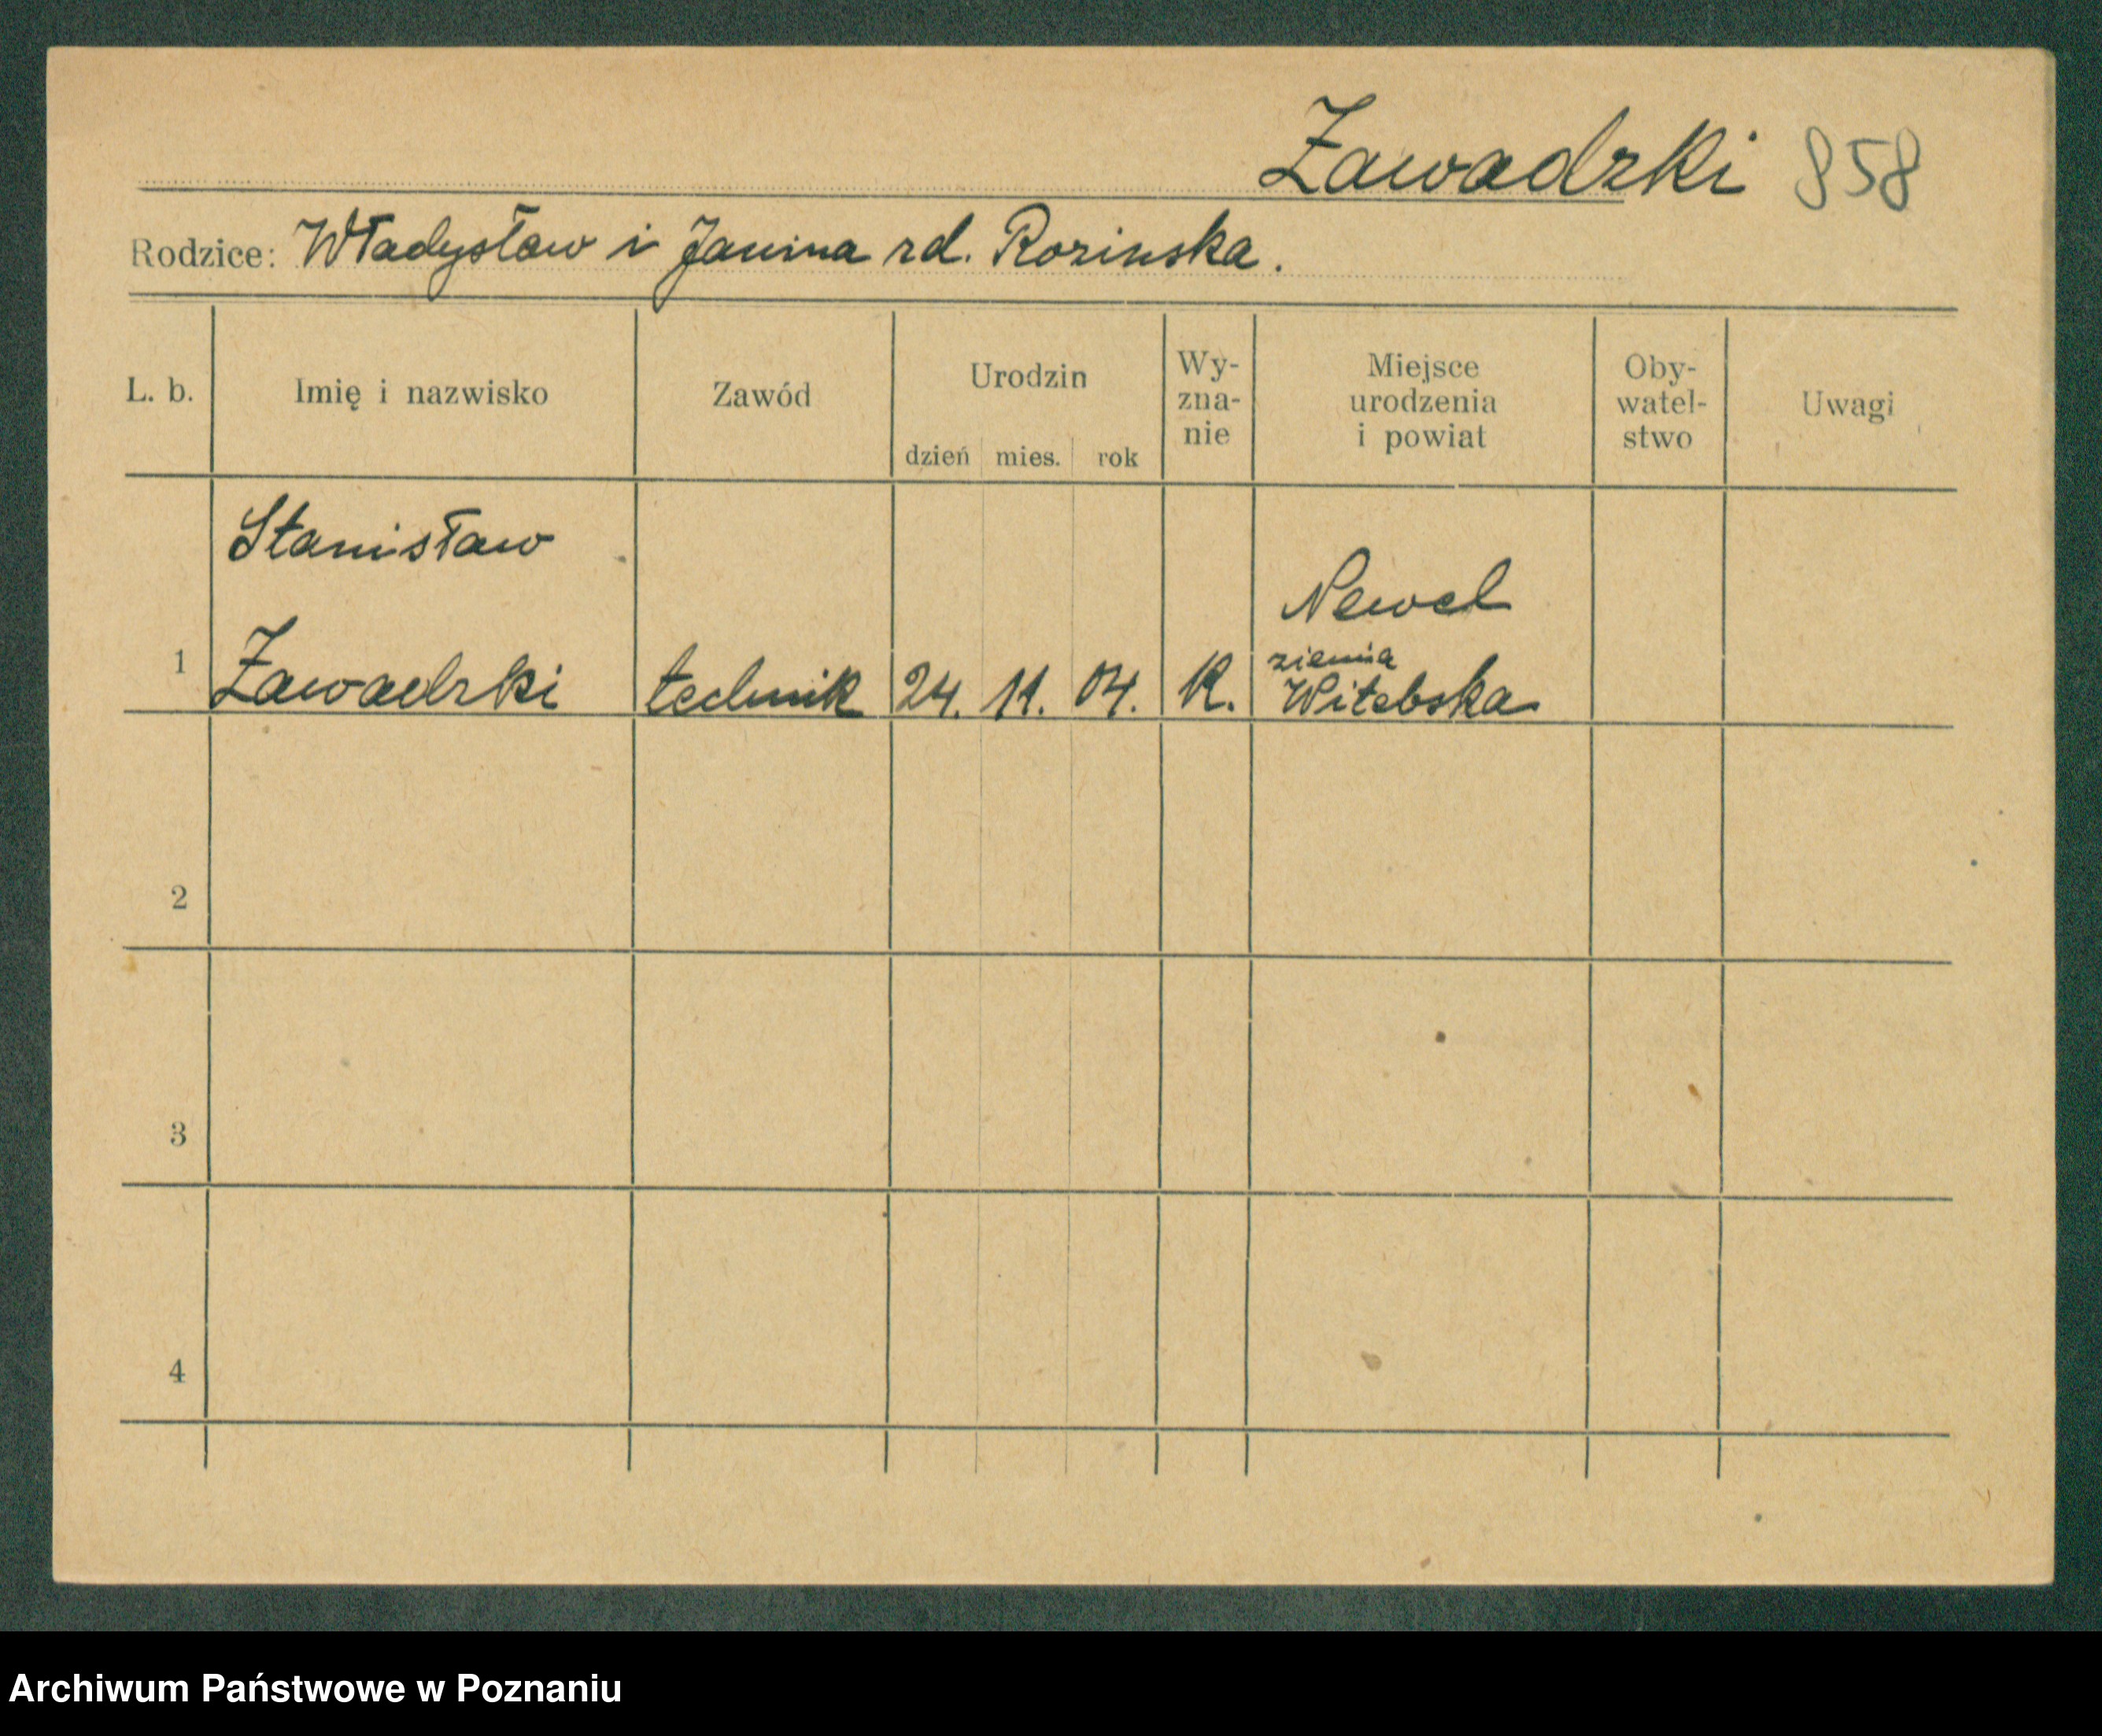 Zawadzki 858
Rodzice: Władysław i Janina zd. Rozinska.
L. b. Imię i nazwisko Zawód Urodzin Wy- Miejsce Oby- Uwagi
zna- urodzenia watel-
nie i powiat stwo
dzień mies. rok
Stanisław
Newel
ziemia
1 Zawadzki technik 24. 11. 04. K. Witebska
2
3
4
Archiwum Państwowe w Poznaniu